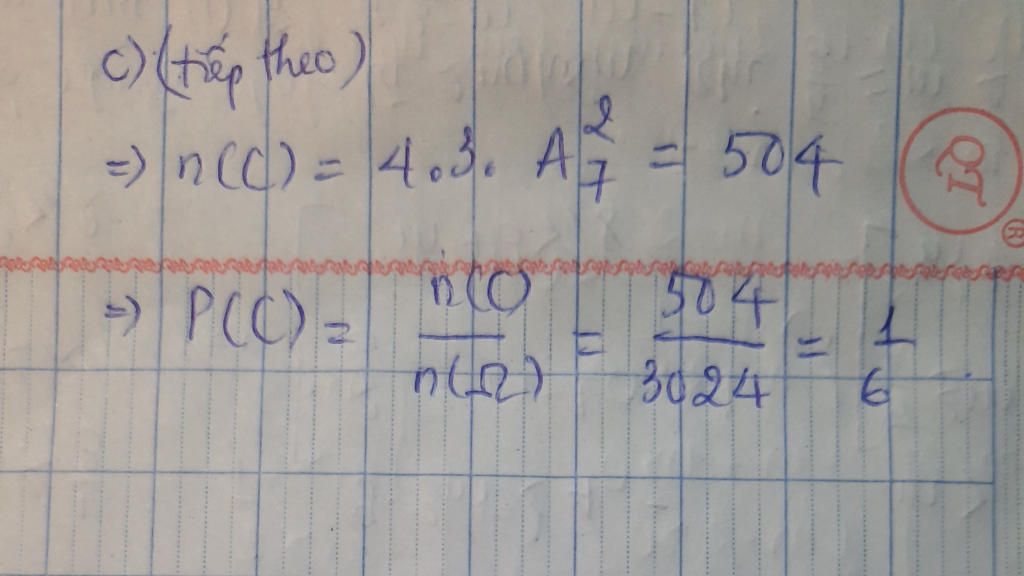 c) (tiếp theo)
=> n(C) = 4.3. A²₇ = 504
=> P(C) = n(C)/n(Ω) = 504/3024 = 1/6
®